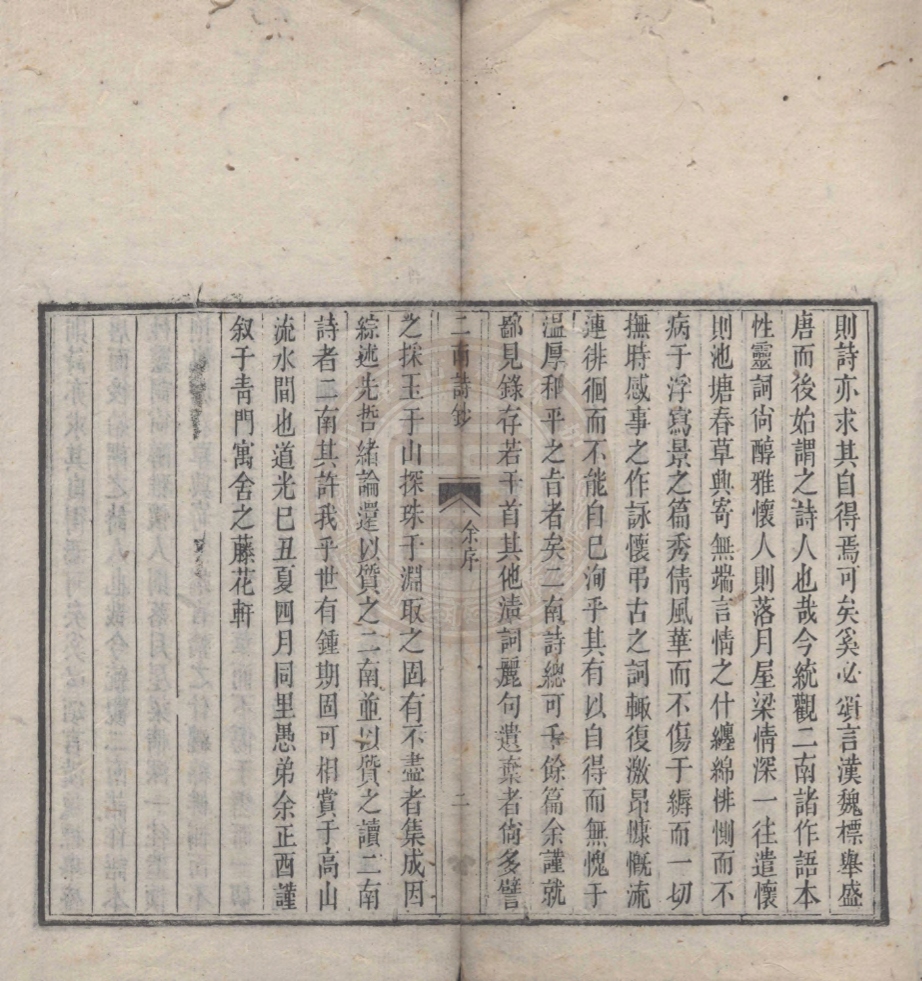 則詩亦求其自得焉可矣奚必頌言漢魏標舉盛
唐而後始謂之詩人也哉今統觀二南諸作語本
性靈詞尙醇雅懷人則落月屋梁情深一往遣懷
則池塘春草興寄無端言情之什纏綿悱惻而不
病于浮寫景之篇秀倩風華而不傷于縟而一切
撫時感事之作詠懷弔古之詞輙復激昂慷慨流
連徘徊而不能自已洵乎其有以自得而無愧于
溫厚和平之旨者矣二南詩總可千餘篇余謹就
鄙見錄存若干首其他淸詞麗句遺棄者尙多譬
二南詩鈔
余序
二
之採玉于山探珠于淵取之固有不盡者集成因
綜述先哲緒論還以質之二南並以質之讀二南
詩者二南其許我乎世有鍾期固可相賞于高山
流水間也道光己丑夏四月同里愚弟余正酉謹
叙于靑門寓舍之藤花軒